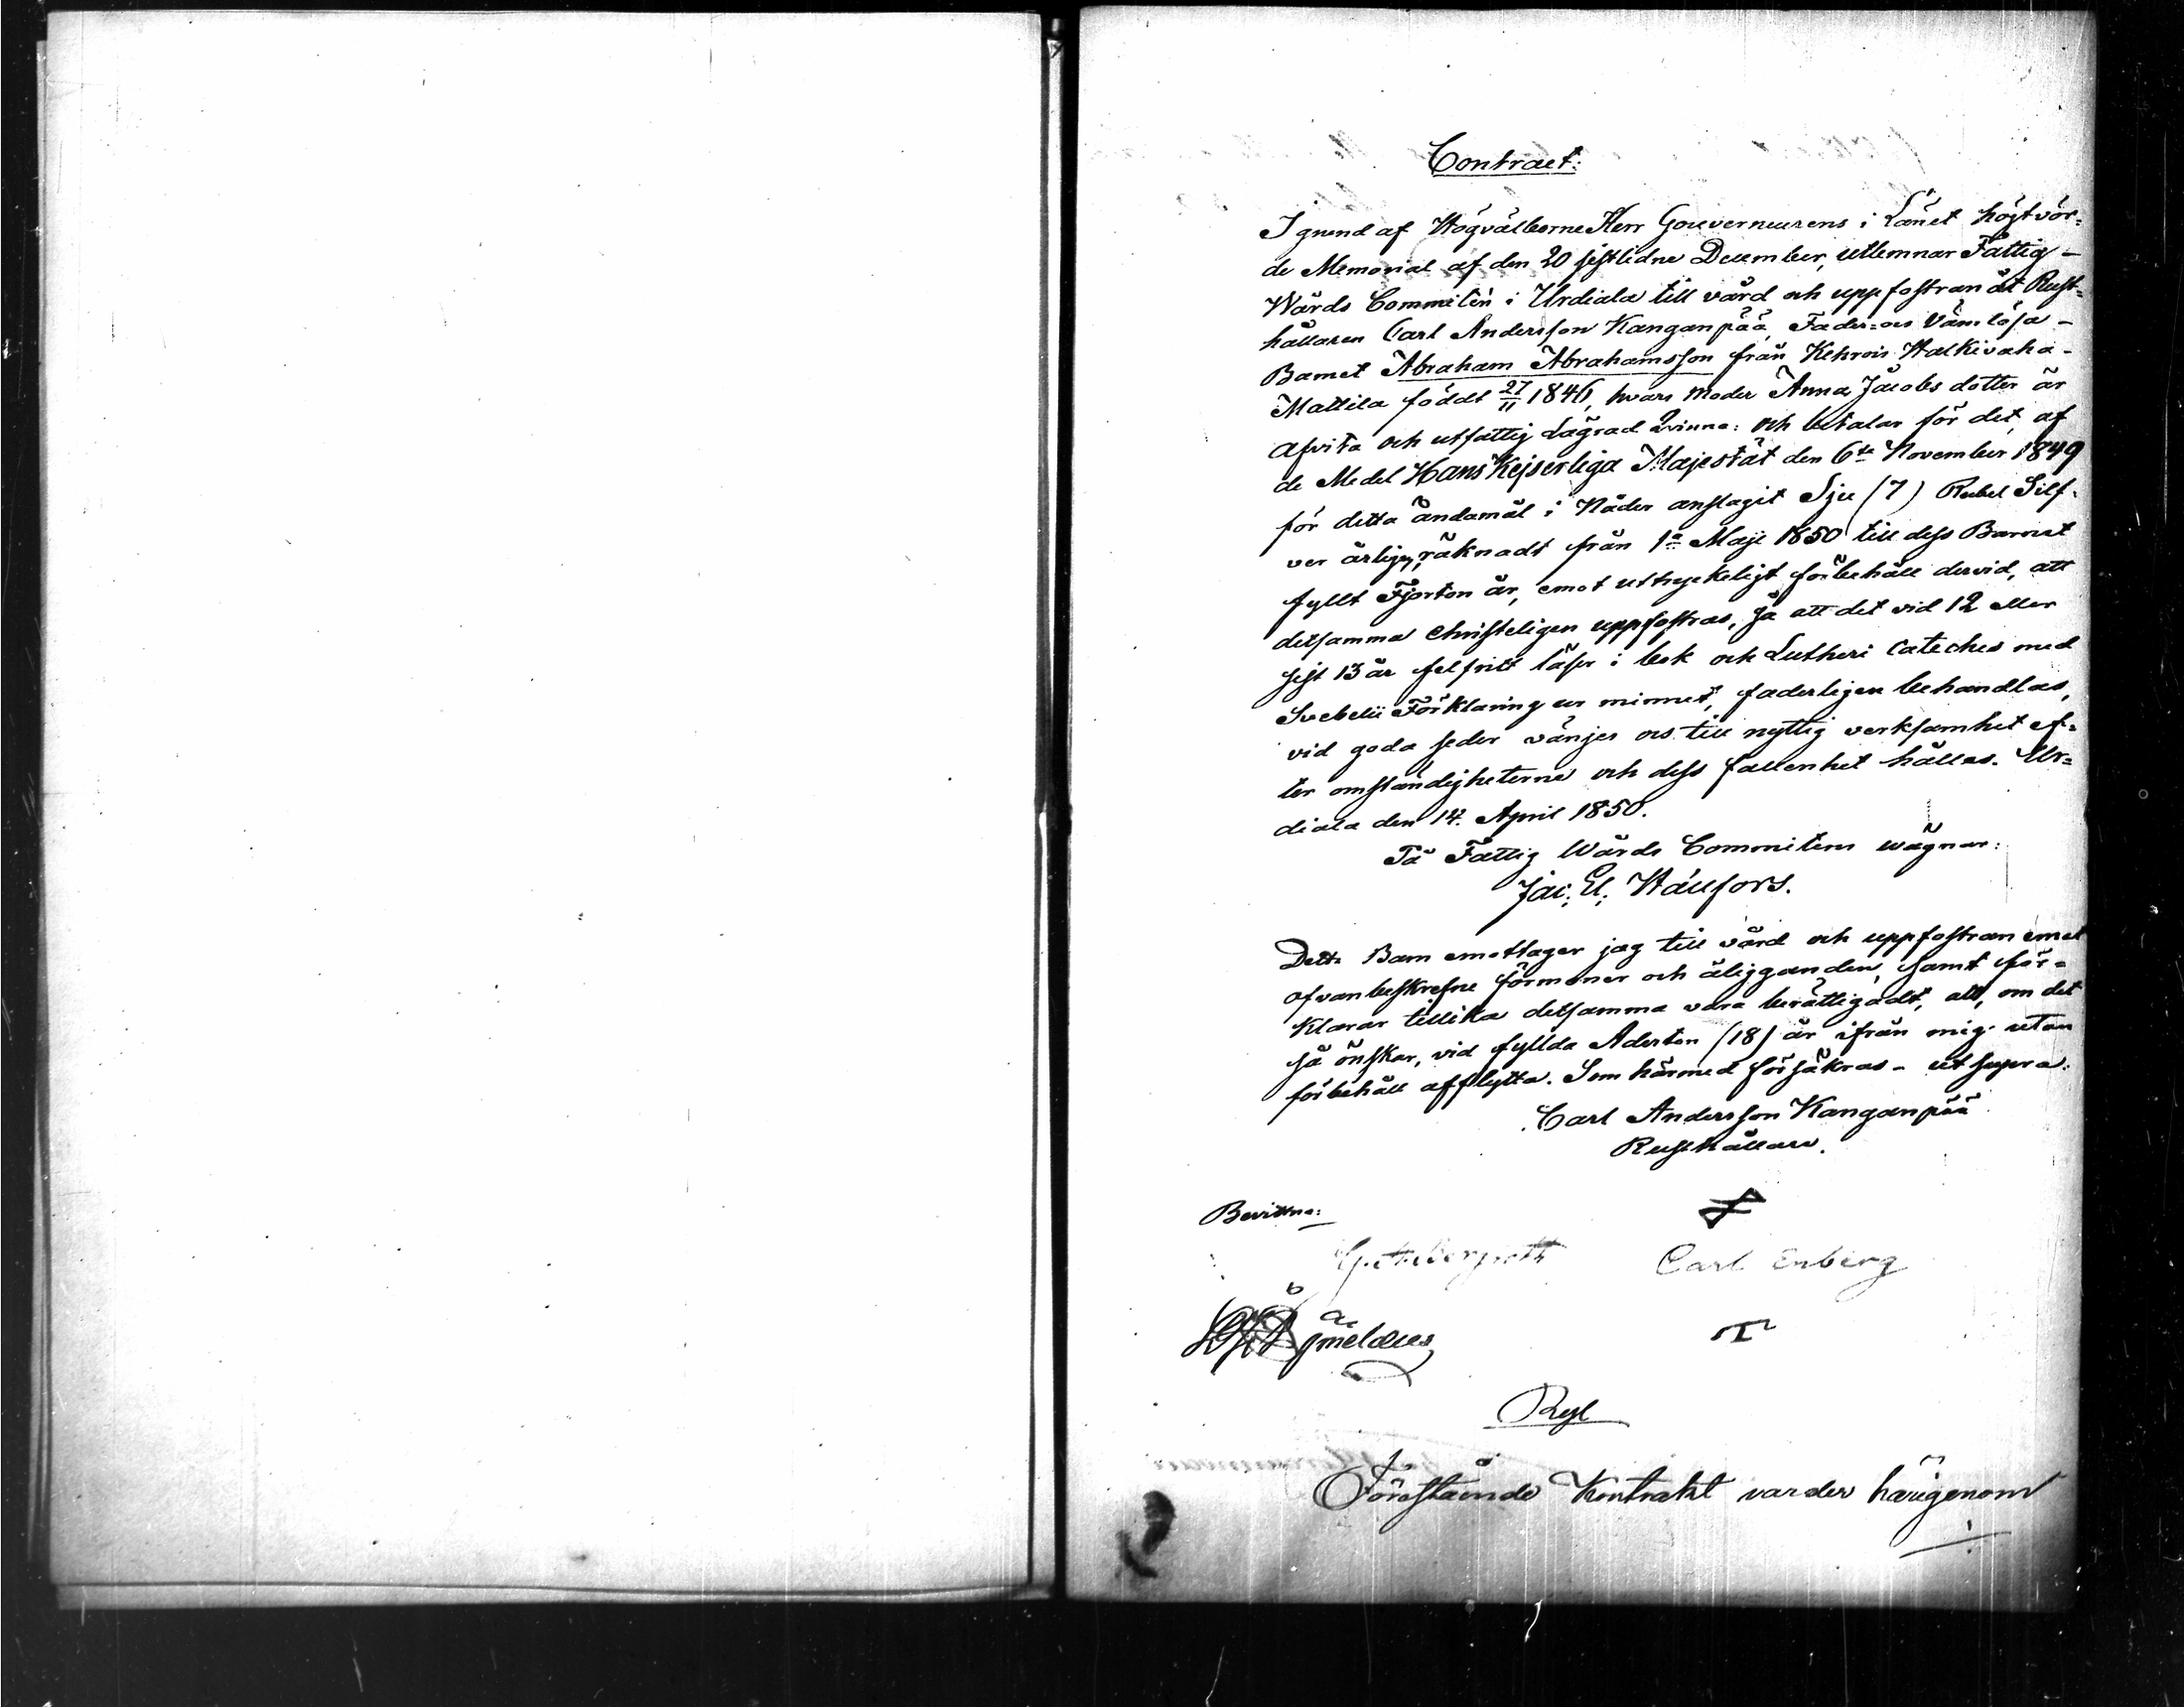 Contract:
I grund af Högvälborne Herr Gouverneurens i Länet högtvör-
de Memorial af den 20 sistlidne December, utlemnar Fattig-
Wårds Committén i Urdiala till vård och uppfostran åt Rust-
hållaren Carl Andersson Kanganpää, Fader- och Värnlösa-
Barnet Abraham Abrahamsson från Kehrois Halkivaha-
Mattila föddt 27/11 1846, hvars Moder Anna Jacobs dotter är
afvita och utfattig Lägrad Qvinna: och betalar för det, af
de Medel Hans Kejserliga Majestät den 6te November 1849
för detta ändamål i Nåder anslagit Sju (7) Rubel Silf-
ver årligen, räknadt från 1a Maji 1850 till dess Barnet
fyllt Fjorton år, emot uttryckeligt förbehåll dervid, att
detsamma Christeligen uppfostras, så att det vid 12 eller
sist 13 år felfritt läser i bok och Lutheri Cateches med
Svebelii Förklaring ur minnet, faderligen behandlas,
vid goda seder vänjes och till nyttig verksamhet ef-
ter omständigheterna och dess fallenhet hålles. Ur-
diala den 14. April 1850.
På Fattig Wårds Committens wägnar:
Jac. El. Hällfors.
Detta Barn emottager jag till vård och uppfostran emot
ofvanbeskrefne förmoner och åligganden, samt för-
klarar tillika detsamma vara berättigadt, att, om det
så önskar, vid fyllda Aderton (18) år ifrån mig utan
förbehåll afflytta. Som härmed försäkras - ut supra.
Carl Andersson Kanganpää
Rusthållare.
Bevittna:
Carl Enberg
Föreståënde Kontrakt varder härigenom